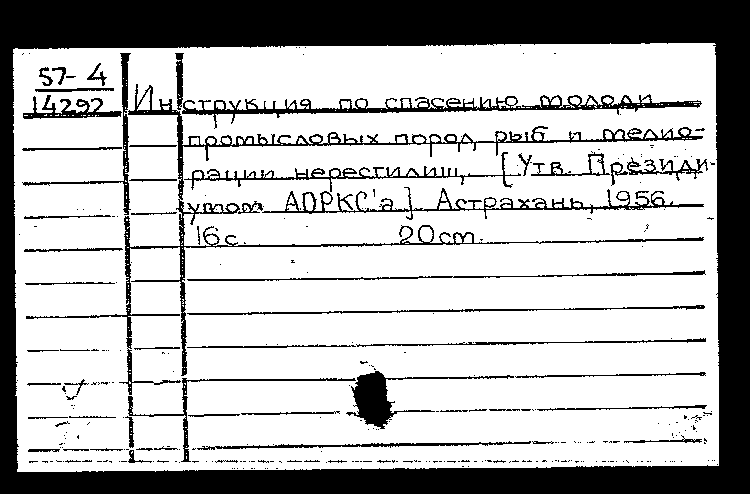 57-4
14292 Инструкция по спасению молоди
промысловых пород рыб и мелио-
рации нерестилищ. [Утв. Президи-
умом АОРКС'а]. Астрахань, 1956.
16с. 20cm.